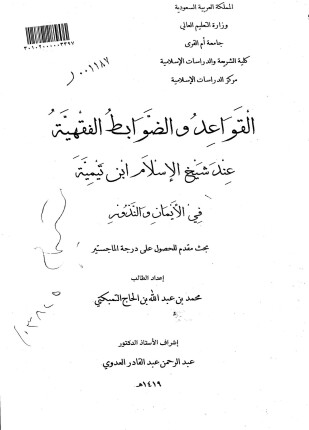 المملكة العربية السعودية
وزارة التعليم العالي
جامعة أم القرى
كلية الشريعة والدراسات الإسلامية
مركز الدراسات الإسلامية
القواعد والضوابط الفقهية
عند شيخ الإسلام ابن تيمية
في الأيمان والنذور
بحث مقدم للحصول على درجة الماجستير
إعداد الطالب
محمد بن عبد الله بن الحاج التمبكتي
إشراف الأستاذ الدكتور
عبد الرحمن عبد القادر العدوي
١٤١٩هـ